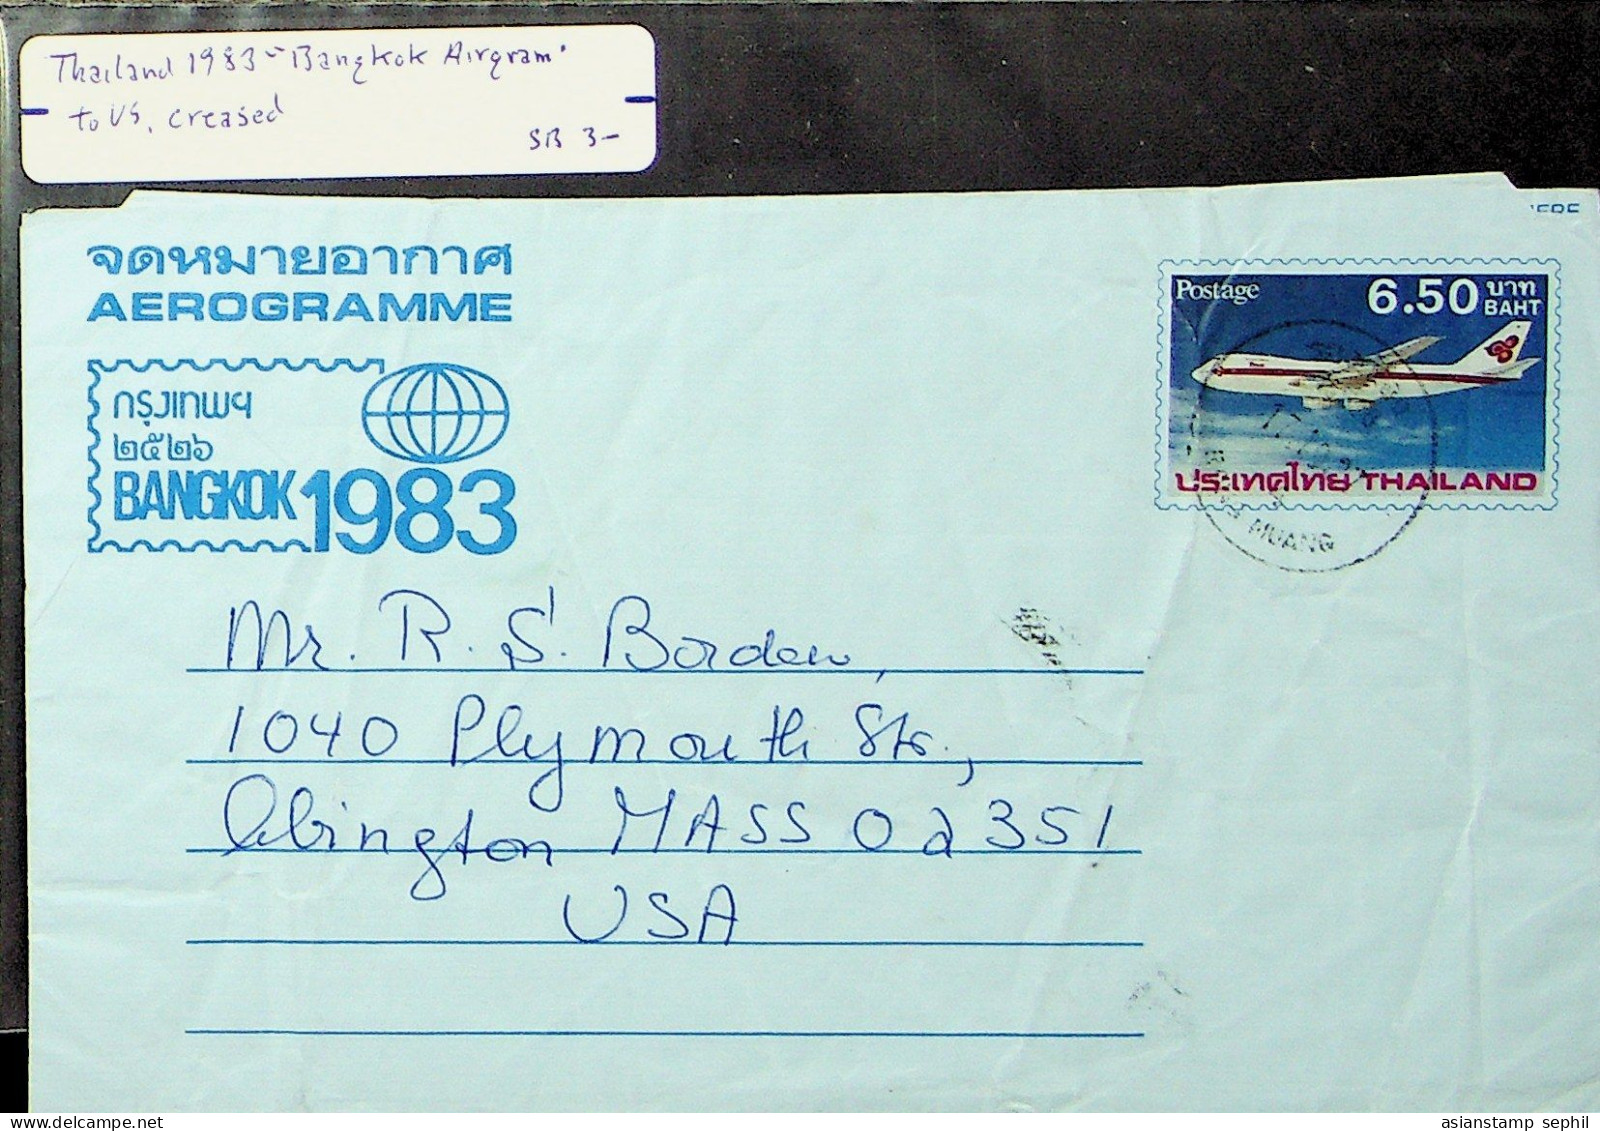 Thailand 1983 - "Bangkok Airgram"
to US, creased
SB 3-
จดหมายอากาศ
AEROGRAMME
กรุงเทพฯ
๒๕๒๖
BANGKOK 1983
Postage 6.50 บาท
BAHT
ประเทศไทย THAILAND
MUANG
Mr. R. S. Borden,
1040 Plymouth Str.,
Abington MASS 02351
USA
asianstamp sephil